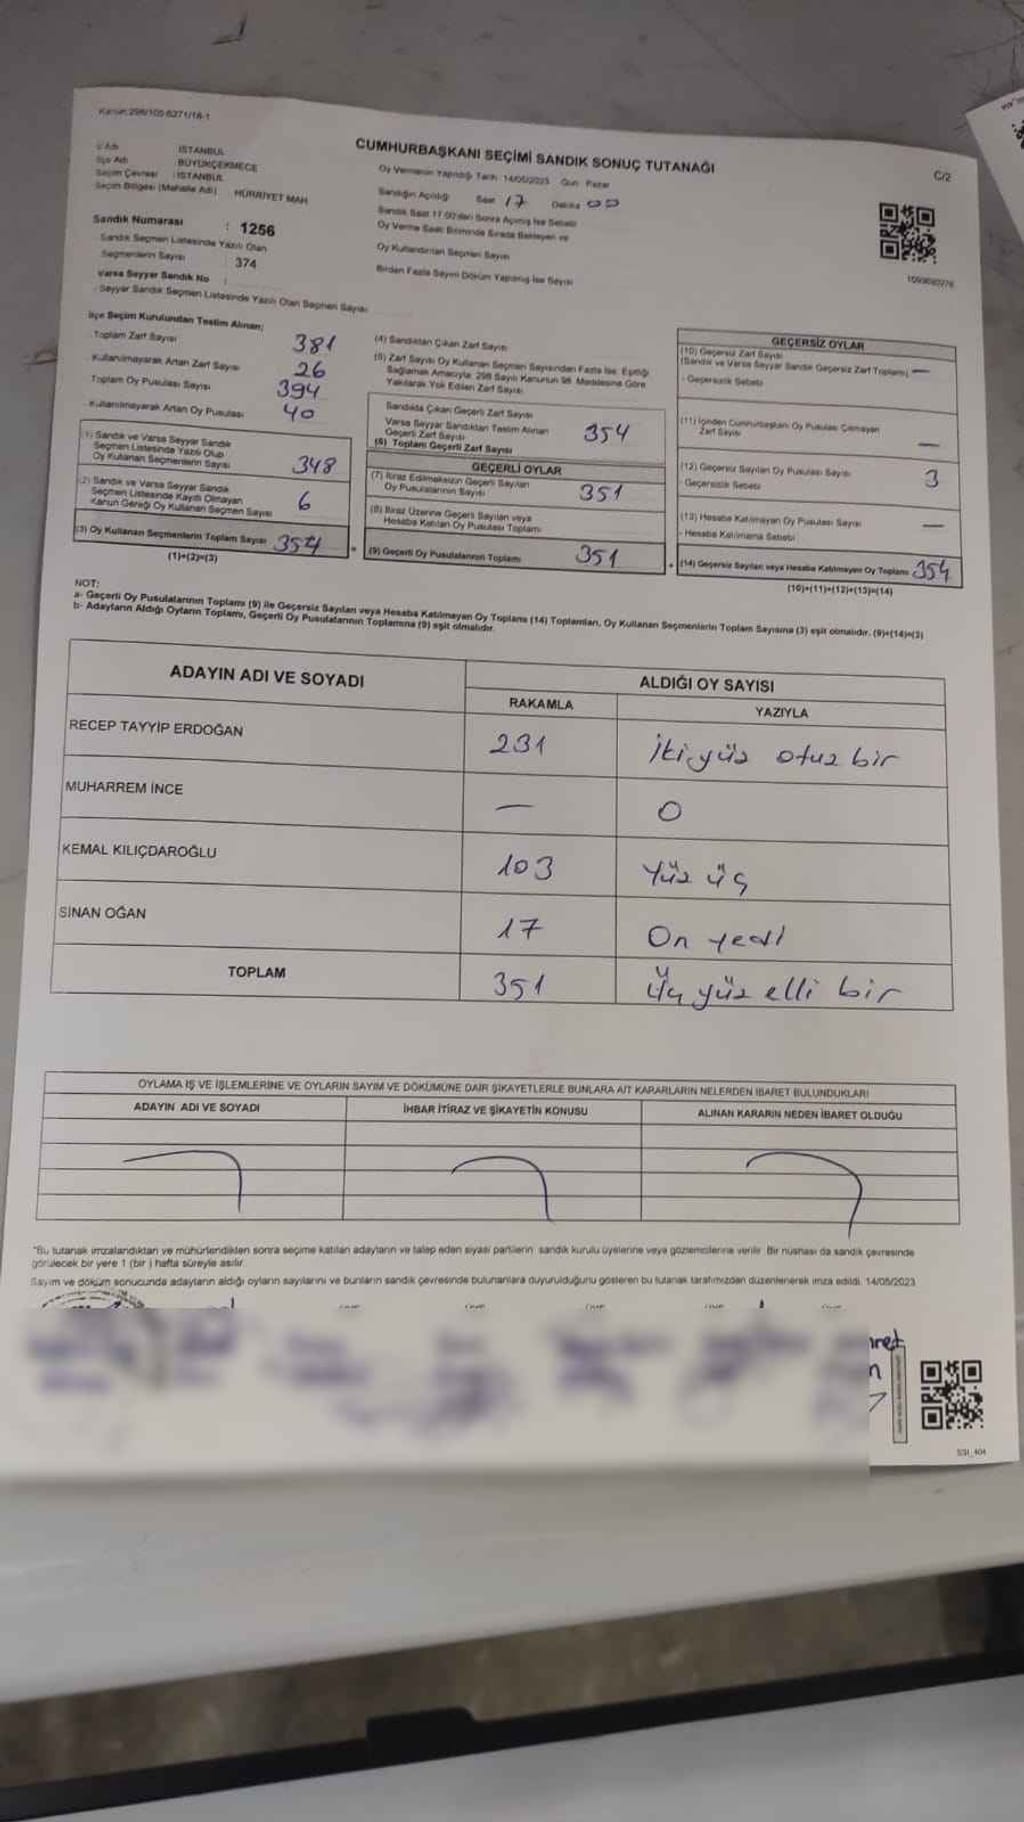 Kanun:298/105-6271/18-1
CUMHURBAŞKANI SEÇİMİ SANDIK SONUÇ TUTANAĞI
C/2
İl Adı : İSTANBUL
İlçe Adı : BÜYÜKÇEKMECE
Seçim Çevresi : İSTANBUL
Seçim Bölgesi (Mahalle Adı) : HÜRRİYET MAH
Oy Vermenin Yapıldığı Tarih: 14/05/2023 Gün: Pazar
Sandığın Açıldığı Saat 17 Dakika 00
Sandık Saat 17:00'den Sonra Açılmış İse Sebebi
Oy Verme Saati Bitiminde Sırada Bekleyen ve
Oy Kullandırılan Seçmen Sayısı
Birden Fazla Sayım Döküm Yapılmış İse Sayısı
Sandık Numarası : 1256
Sandık Seçmen Listesinde Yazılı Olan
Seçmenlerin Sayısı : 374
Varsa Seyyar Sandık No :
Seyyar Sandık Seçmen Listesinde Yazılı Olan Seçmen Sayısı
İlçe Seçim Kurulundan Teslim Alınan;
Toplam Zarf Sayısı 381
Kullanılmayarak Artan Zarf Sayısı 26
Toplam Oy Pusulası Sayısı 394
Kullanılmayarak Artan Oy Pusulası 40
(1) Sandık ve Varsa Seyyar Sandık
Seçmen Listesinde Yazılı Olup
Oy Kullanan Seçmenlerin Sayısı 348
(2) Sandık ve Varsa Seyyar Sandık
Seçmen Listesinde Kayıtlı Olmayan
Kanun Gereği Oy Kullanan Seçmen Sayısı 6
(3) Oy Kullanan Seçmenlerin Toplam Sayısı 354
(1)+(2)=(3)
(4) Sandıktan Çıkan Zarf Sayısı
(5) Zarf Sayısı Oy Kullanan Seçmen Sayısından Fazla İse, Eşitliği
Sağlamak Amacıyla, 298 Sayılı Kanunun 98. Maddesine Göre
Yakılarak Yok Edilen Zarf Sayısı
Sandıkta Çıkan Geçerli Zarf Sayısı
Varsa Seyyar Sandıktan Teslim Alınan
Geçerli Zarf Sayısı
(6) Toplam Geçerli Zarf Sayısı 354
GEÇERLİ OYLAR
(7) İtiraz Edilmeksizin Geçerli Sayılan
Oy Pusulalarının Sayısı 351
(8) İtiraz Üzerine Geçerli Sayılan veya
Hesaba Katılan Oy Pusulası Toplamı
(9) Geçerli Oy Pusulalarının Toplamı 351
GEÇERSİZ OYLAR
(10) Geçersiz Zarf Sayısı
(Sandık ve Varsa Seyyar Sandık Geçersiz Zarf Toplamı) —
- Geçersizlik Sebebi
(11) İçinden Cumhurbaşkanı Oy Pusulası Çıkmayan
Zarf Sayısı —
(12) Geçersiz Sayılan Oy Pusulası Sayısı 3
- Geçersizlik Sebebi
(13) Hesaba Katılmayan Oy Pusulası Sayısı —
- Hesaba Katılmama Sebebi
(14) Geçersiz Sayılan veya Hesaba Katılmayan Oy Toplamı 354
(10)+(11)+(12)+(13)=(14)
NOT:
a- Geçerli Oy Pusulalarının Toplamı (9) ile Geçersiz Sayılan veya Hesaba Katılmayan Oy Toplamı (14) Toplamları, Oy Kullanan Seçmenlerin Toplam Sayısına (3) eşit olmalıdır. (9)+(14)=(3)
b- Adayların Aldığı Oyların Toplamı, Geçerli Oy Pusulalarının Toplamına (9) eşit olmalıdır.
ADAYIN ADI VE SOYADI
ALDIĞI OY SAYISI
RAKAMLA YAZIYLA
RECEP TAYYİP ERDOĞAN 231 İki yüz otuz bir
MUHARREM İNCE — 0
KEMAL KILIÇDAROĞLU 103 Yüz üç
SİNAN OĞAN 17 On yedi
TOPLAM 351 Üç yüz elli bir
OYLAMA İŞ VE İŞLEMLERİNE VE OYLARIN SAYIM VE DÖKÜMÜNE DAİR ŞİKAYETLERLE BUNLARA AİT KARARLARIN NELERDEN İBARET BULUNDUKLARI
ADAYIN ADI VE SOYADI İHBAR İTİRAZ VE ŞİKAYETİN KONUSU ALINAN KARARIN NEDEN İBARET OLDUĞU
"Bu tutanak imzalandıktan ve mühürlendikten sonra seçime katılan adayların ve talep eden siyasi partilerin sandık kurulu üyelerine veya gözlemcilerine verilir. Bir nüshası da sandık çevresinde
görülecek bir yere 1 (bir ) hafta süreyle asılır.
Sayım ve döküm sonucunda adayların aldığı oyların sayılarını ve bunların sandık çevresinde bulunanlara duyurulduğunu gösteren bu tutanak tarafımızdan düzenlenerek imza edildi. 14/05/2023